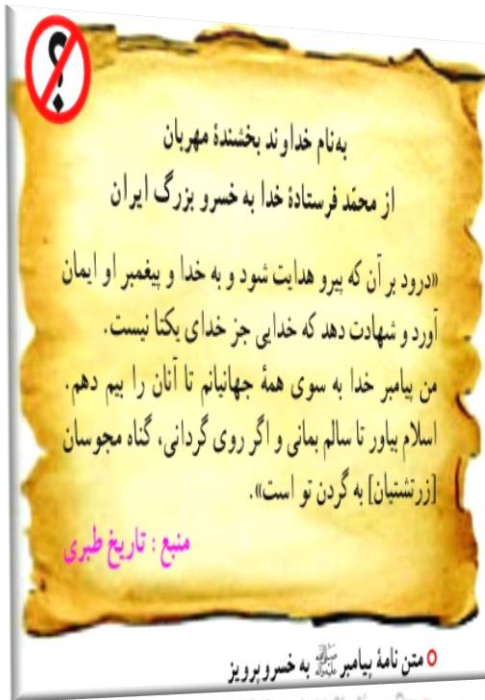 به‌نام خداوند بخشندهٔ مهربان
از محمّد فرستادهٔ خدا به خسرو بزرگ ایران
«درود بر آن که پیرو هدایت شود و به خدا و پیغمبر او ایمان
آورد و شهادت دهد که خدایی جز خدای یکتا نیست.
من پیامبر خدا به سوی همهٔ جهانیانم تا آنان را بیم دهم.
اسلام بیاور تا سالم بمانی و اگر روی گردانی، گناه مجوسان
[زرتشتیان] به گردن تو است».
منبع : تاریخ طبری
متن نامهٔ پیامبر ﷺ به خسروپرویز